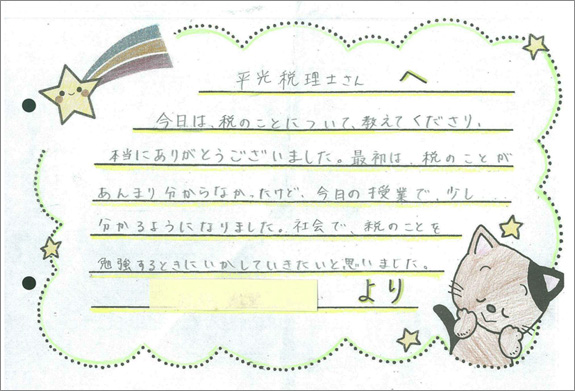 平光税理士さん へ
今日は、税のことについて、教えてくださり、
本当にありがとうございました。最初は、税のことが
あんまり分からなかったけど、今日の授業で、少し
分かるようになりました。社会で、税のことを
勉強するときにいかしていきたいと思いました。
より